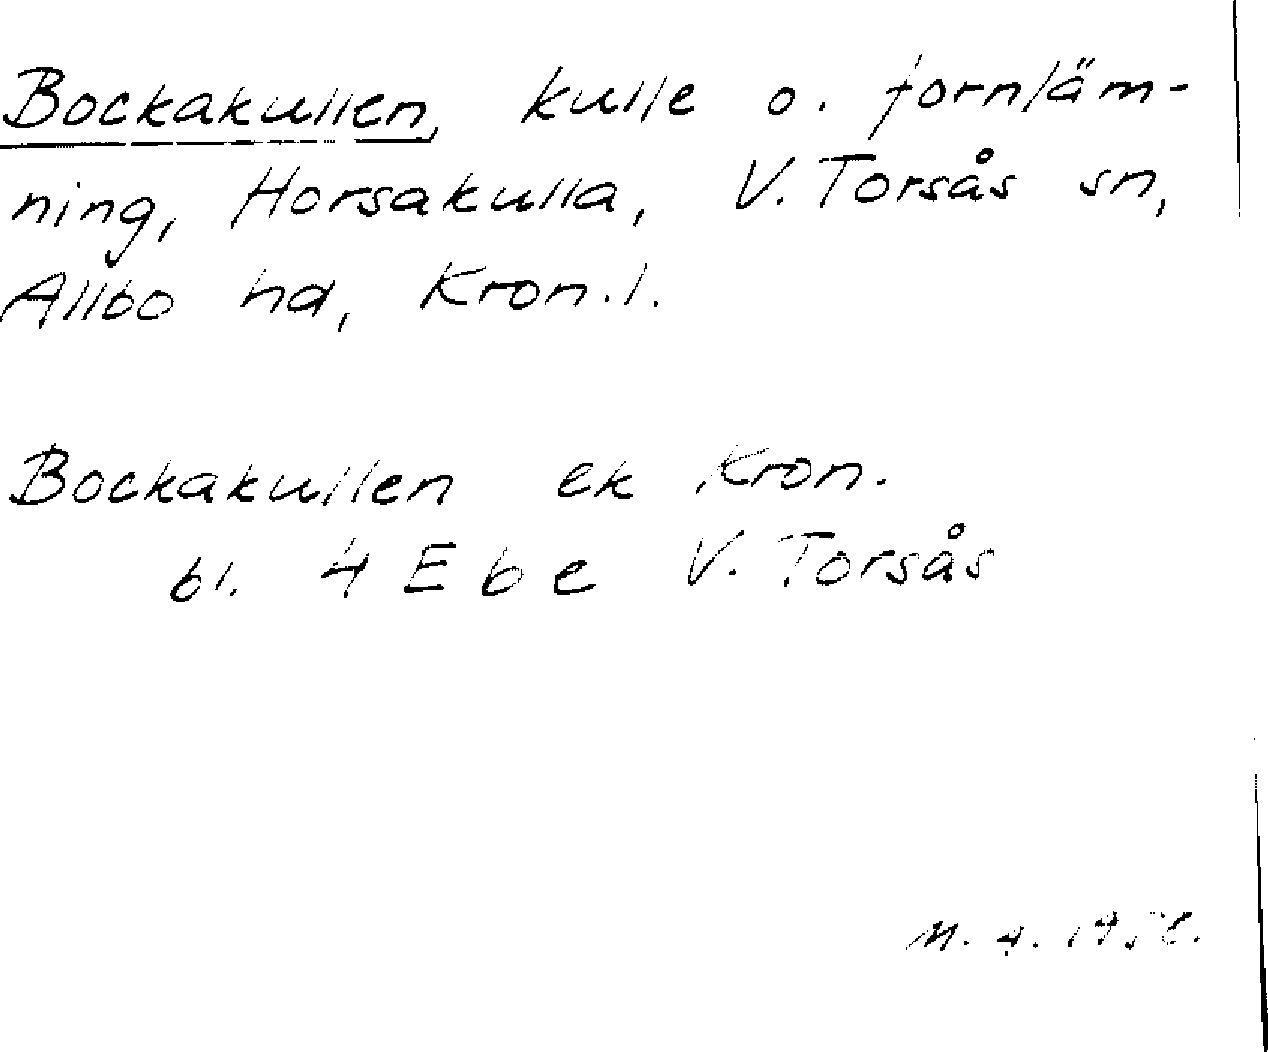 Bockakullen, kulle o. fornläm-
ning, Horsakulla, V. Torsås sn,
Allbo hd, Kron.l.
Bockakullen ek Kron.
bl. 4 E b e V. Torsås